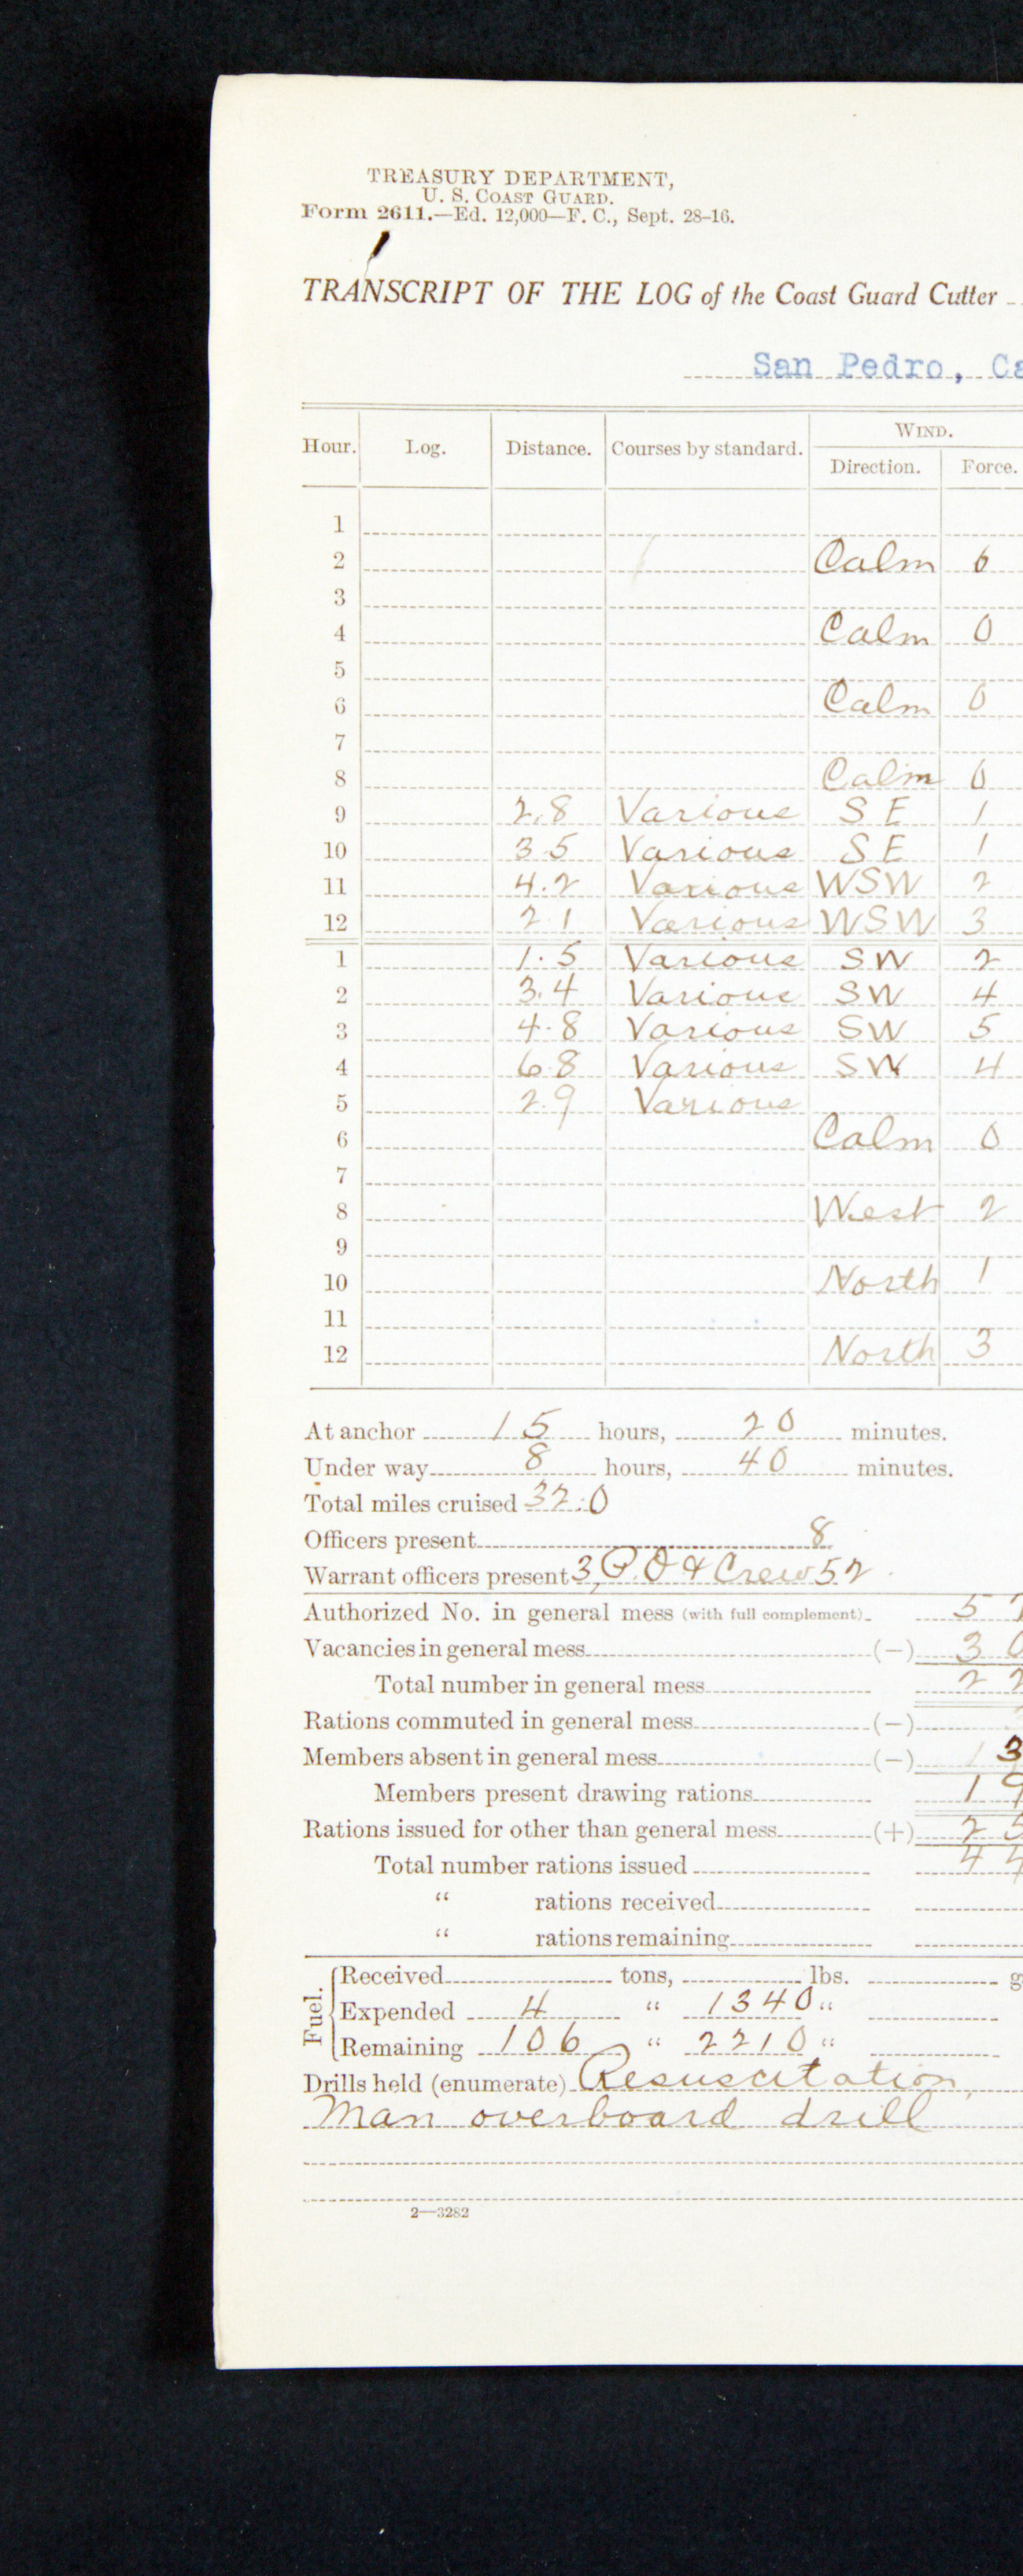 TREASURY DEPARTMENT,
U. S. COAST GUARD.
Form 2611.—Ed. 12,000—F. C., Sept. 28-16.
TRANSCRIPT OF THE LOG of the Coast Guard Cutter
San Pedro, Ca
Hour. Log. Distance. Courses by standard. WIND.
Direction. Force.
1
2 Calm 0
3
4 Calm 0
5
6 Calm 0
7
8 Calm 0
9 2.8 Various SE 1
10 3.5 Various SE 1
11 4.2 Various WSW 2
12 2.1 Various WSW 3
1 1.5 Various SW 2
2 3.4 Various SW 4
3 4.8 Various SW 5
4 6.8 Various SW 4
5 2.9 Various
6 Calm 0
7
8 West 2
9
10 North 1
11
12 North 3
At anchor 15 hours, 20 minutes.
Under way 8 hours, 40 minutes.
Total miles cruised 32.0
Officers present 8
Warrant officers present 3, P.O & Crew 52
Authorized No. in general mess (with full complement) 5
Vacancies in general mess (—) 3
Total number in general mess 2 2
Rations commuted in general mess (—)
Members absent in general mess (—) 3
Members present drawing rations 1 9
Rations issued for other than general mess (+) 2 5
Total number rations issued 4 4
“ rations received
“ rations remaining
Fuel.
Received tons, lbs. g
Expended 4 “ 1340 “
Remaining 106 “ 2210 “
Drills held (enumerate) Resuscitation,
Man overboard drill
2—3282